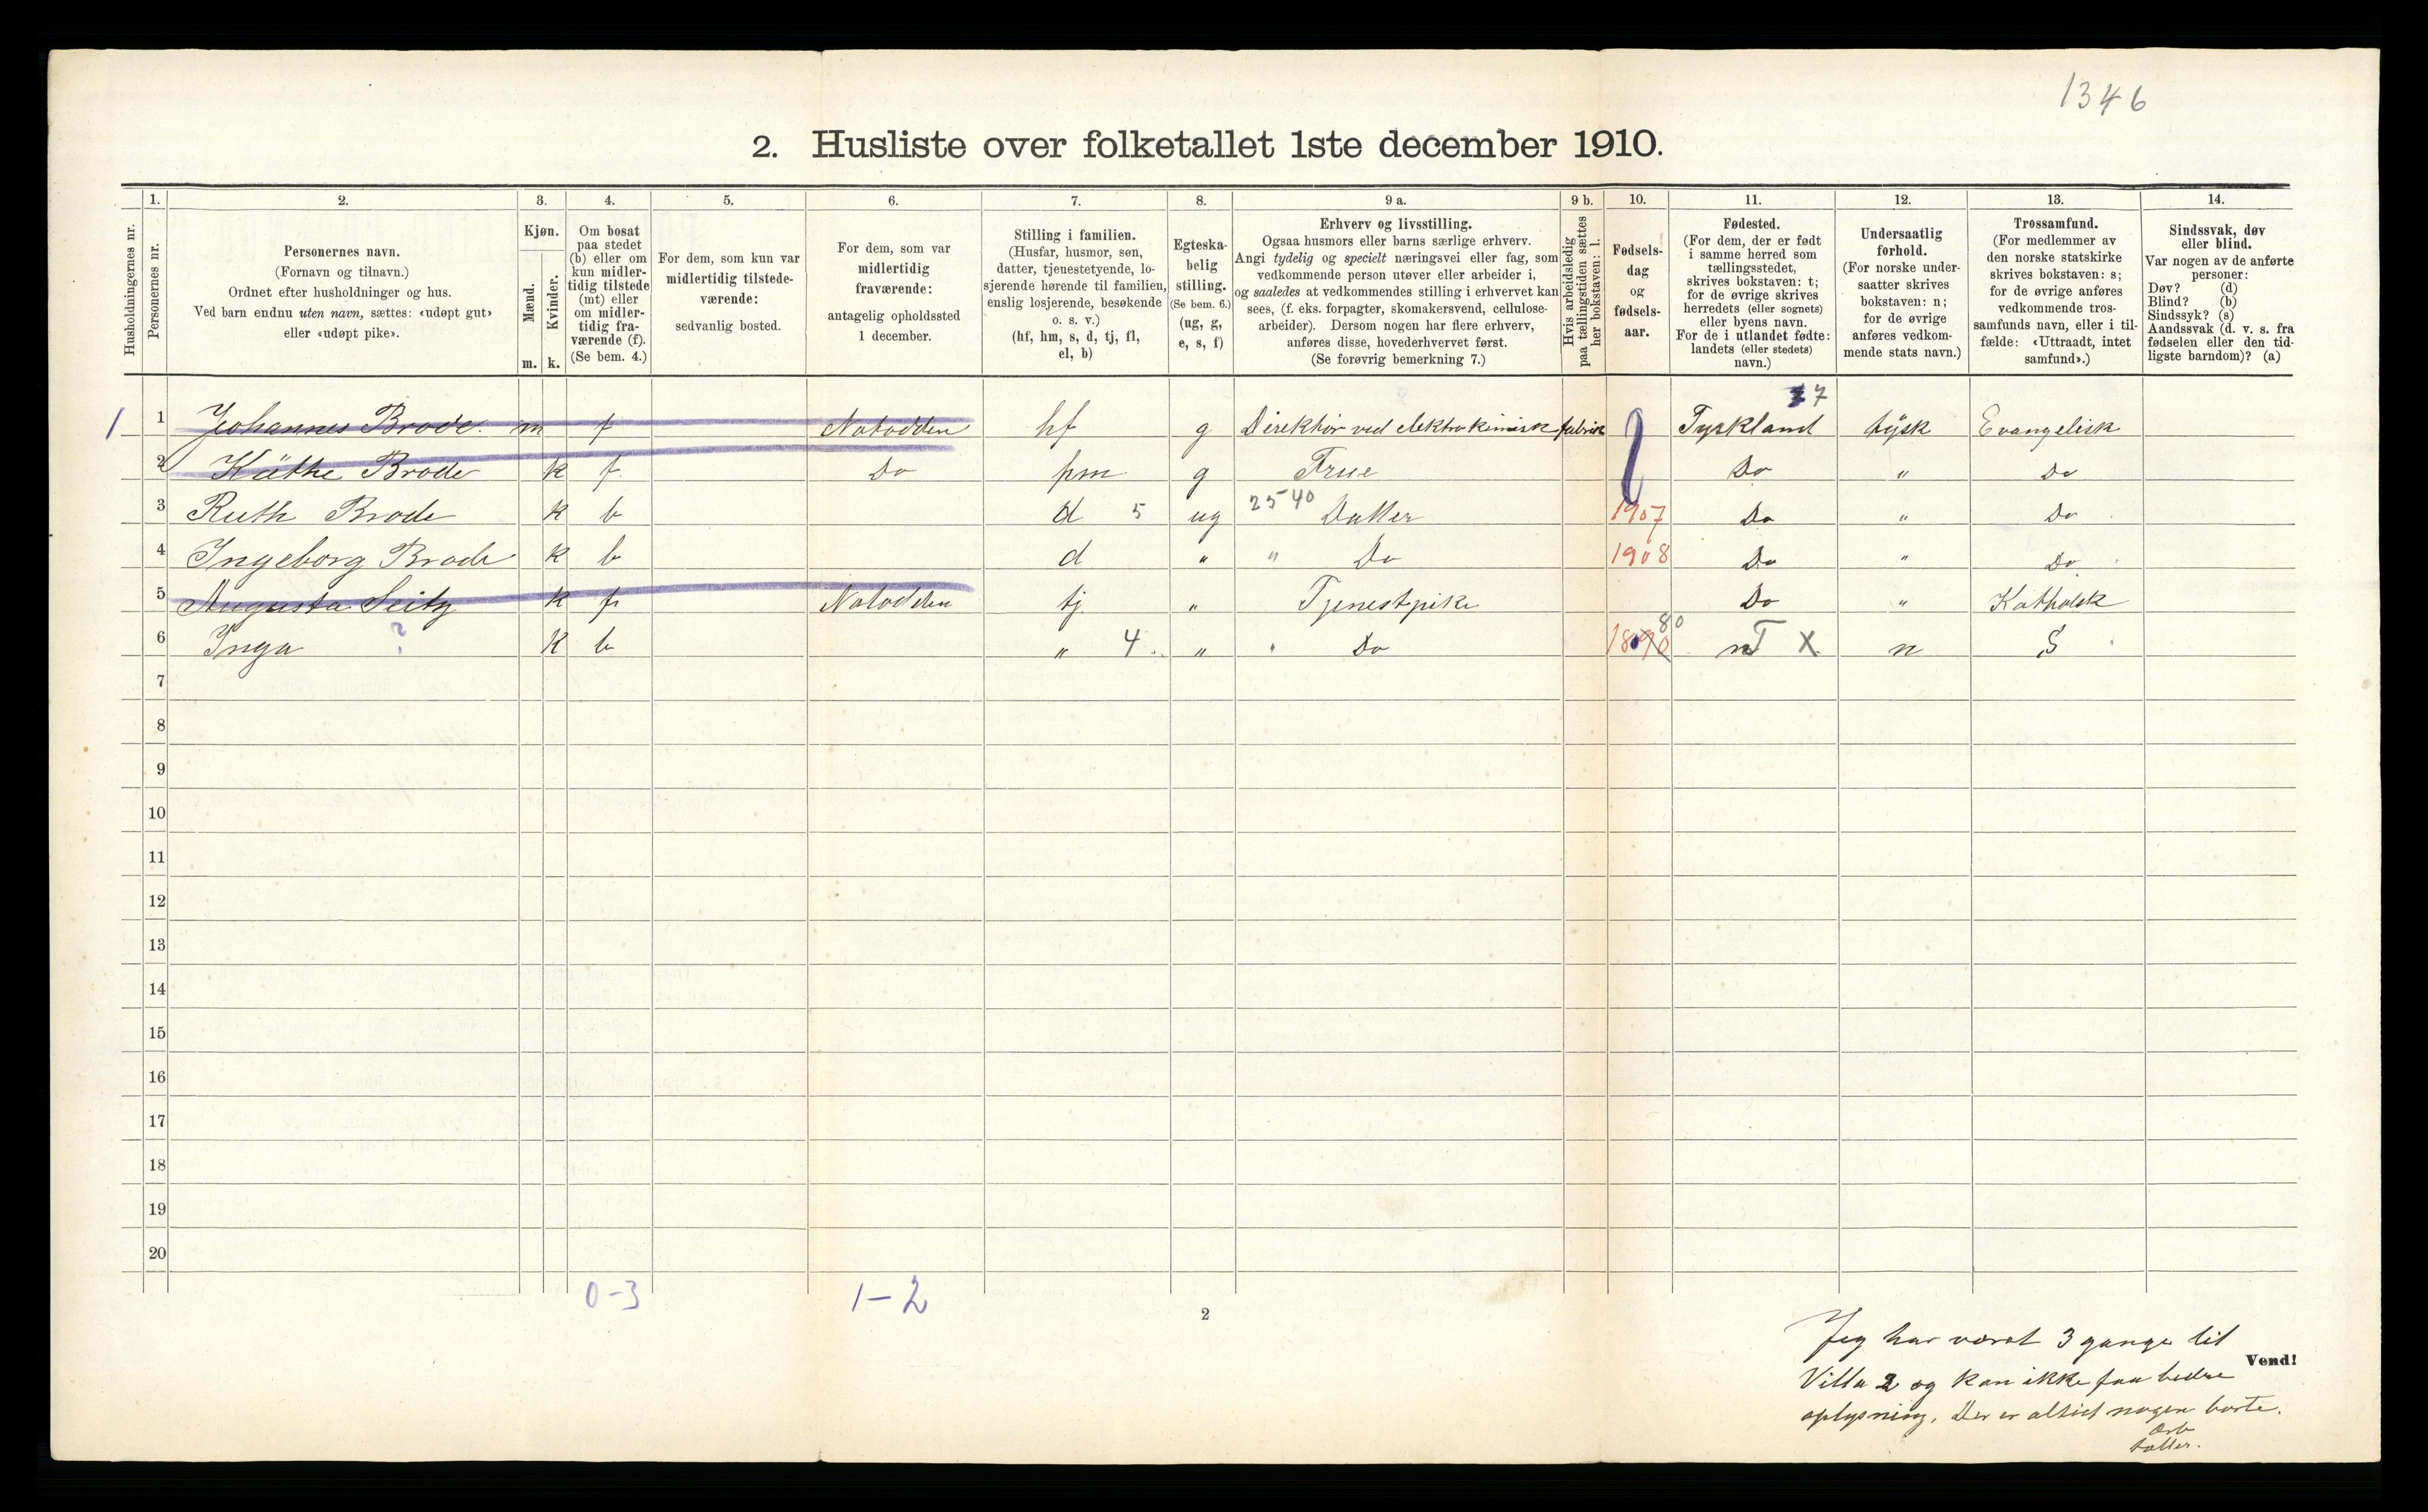 1346
2. Husliste over folketallet 1ste december 1910.
Husholdningernes nr.
1. 2. 3. 4. 5. 6. 7. 8. 9 a. 9 b. 10. 11. 12. 13. 14.
Personernes nr.
Personernes navn.
(Fornavn og tilnavn.)
Ordnet efter husholdninger og hus.
Ved barn endnu uten navn, sættes: «udøpt gut»
eller «udøpt pike».
Kjøn.
Mænd.
Kvinder.
m. k.
Om bosat
paa stedet
(b) eller om
kun midler-
tidig tilstede
(mt) eller
om midler-
tidig fra-
værende (f).
(Se bem. 4.)
For dem, som kun var
midlertidig tilstede-
værende:
sedvanlig bosted.
For dem, som var
midlertidig
fraværende:
antagelig opholdssted
1 december.
Stilling i familien.
(Husfar, husmor, søn,
datter, tjenestetyende, lo-
sjerende hørende til familien,
enslig losjerende, besøkende
o. s. v.)
(hf, hm, s, d, tj, fl,
el, b)
Egteska-
belig
stilling.
(Se bem. 6.)
(ug, g,
e, s, f)
Erhverv og livsstilling.
Ogsaa husmors eller barns særlige erhverv.
Angi tydelig og specielt næringsvei eller fag, som
vedkommende person utøver eller arbeider i,
og saaledes at vedkommendes stilling i erhvervet kan
sees, (f. eks. forpagter, skomakersvend, cellulose-
arbeider). Dersom nogen har flere erhverv,
anføres disse, hovederhvervet først.
(Se forøvrig bemerkning 7.)
Hvis arbeidsledig
paa tællingstiden sættes
her bokstaven: l.
Fødsels-
dag
og
fødsels-
aar.
Fødested.
(For dem, der er født
i samme herred som
tællingsstedet,
skrives bokstaven: t;
for de øvrige skrives
herredets (eller sognets)
eller byens navn.
For de i utlandet fødte:
landets (eller stedets)
navn.)
Undersaatlig
forhold.
(For norske under-
saatter skrives
bokstaven: n;
for de øvrige
anføres vedkom-
mende stats navn.)
Trossamfund.
(For medlemmer av
den norske statskirke
skrives bokstaven: s;
for de øvrige anføres
vedkommende tros-
samfunds navn, eller i til-
fælde: «Uttraadt, intet
samfund».)
Sindssvak, døv
eller blind.
Var nogen av de anførte
personer:
Døv? (d)
Blind? (b)
Sindssyk? (s)
Aandssvak (d. v. s. fra
fødselen eller den tid-
ligste barndom)? (a)
7
1 1 Johannes Brode. m f Notodden hf g Direktør ved elektrokimisk fabrik Tyskland tysk Evangelisk
2 Käthe Brode k f Do hm g Frue Do " Do
3 Ruth Brode k b d 5 ug 25-40 Datter 1907 Do " Do
4 Ingeborg Brode k b d " " Do 1908 Do " Do
5 Augusta Seitz k f Notodden tj " Tjenestpike Do " Katholsk
6 Inga ? k b " 4 " " Do 1890 80 n T X n S
7
8
9
10
11
12
13
14
15
16
17
18
19
20
0-3 1-2
2
Jeg har været 3 gange til
Vend!
Villa 2 og kan ikke faa bedre
oplysning. Der er altid nogen borte.
tæller.